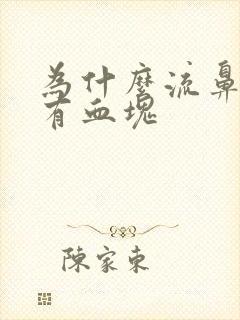 為什麼流鼻
有血塊
陳家東